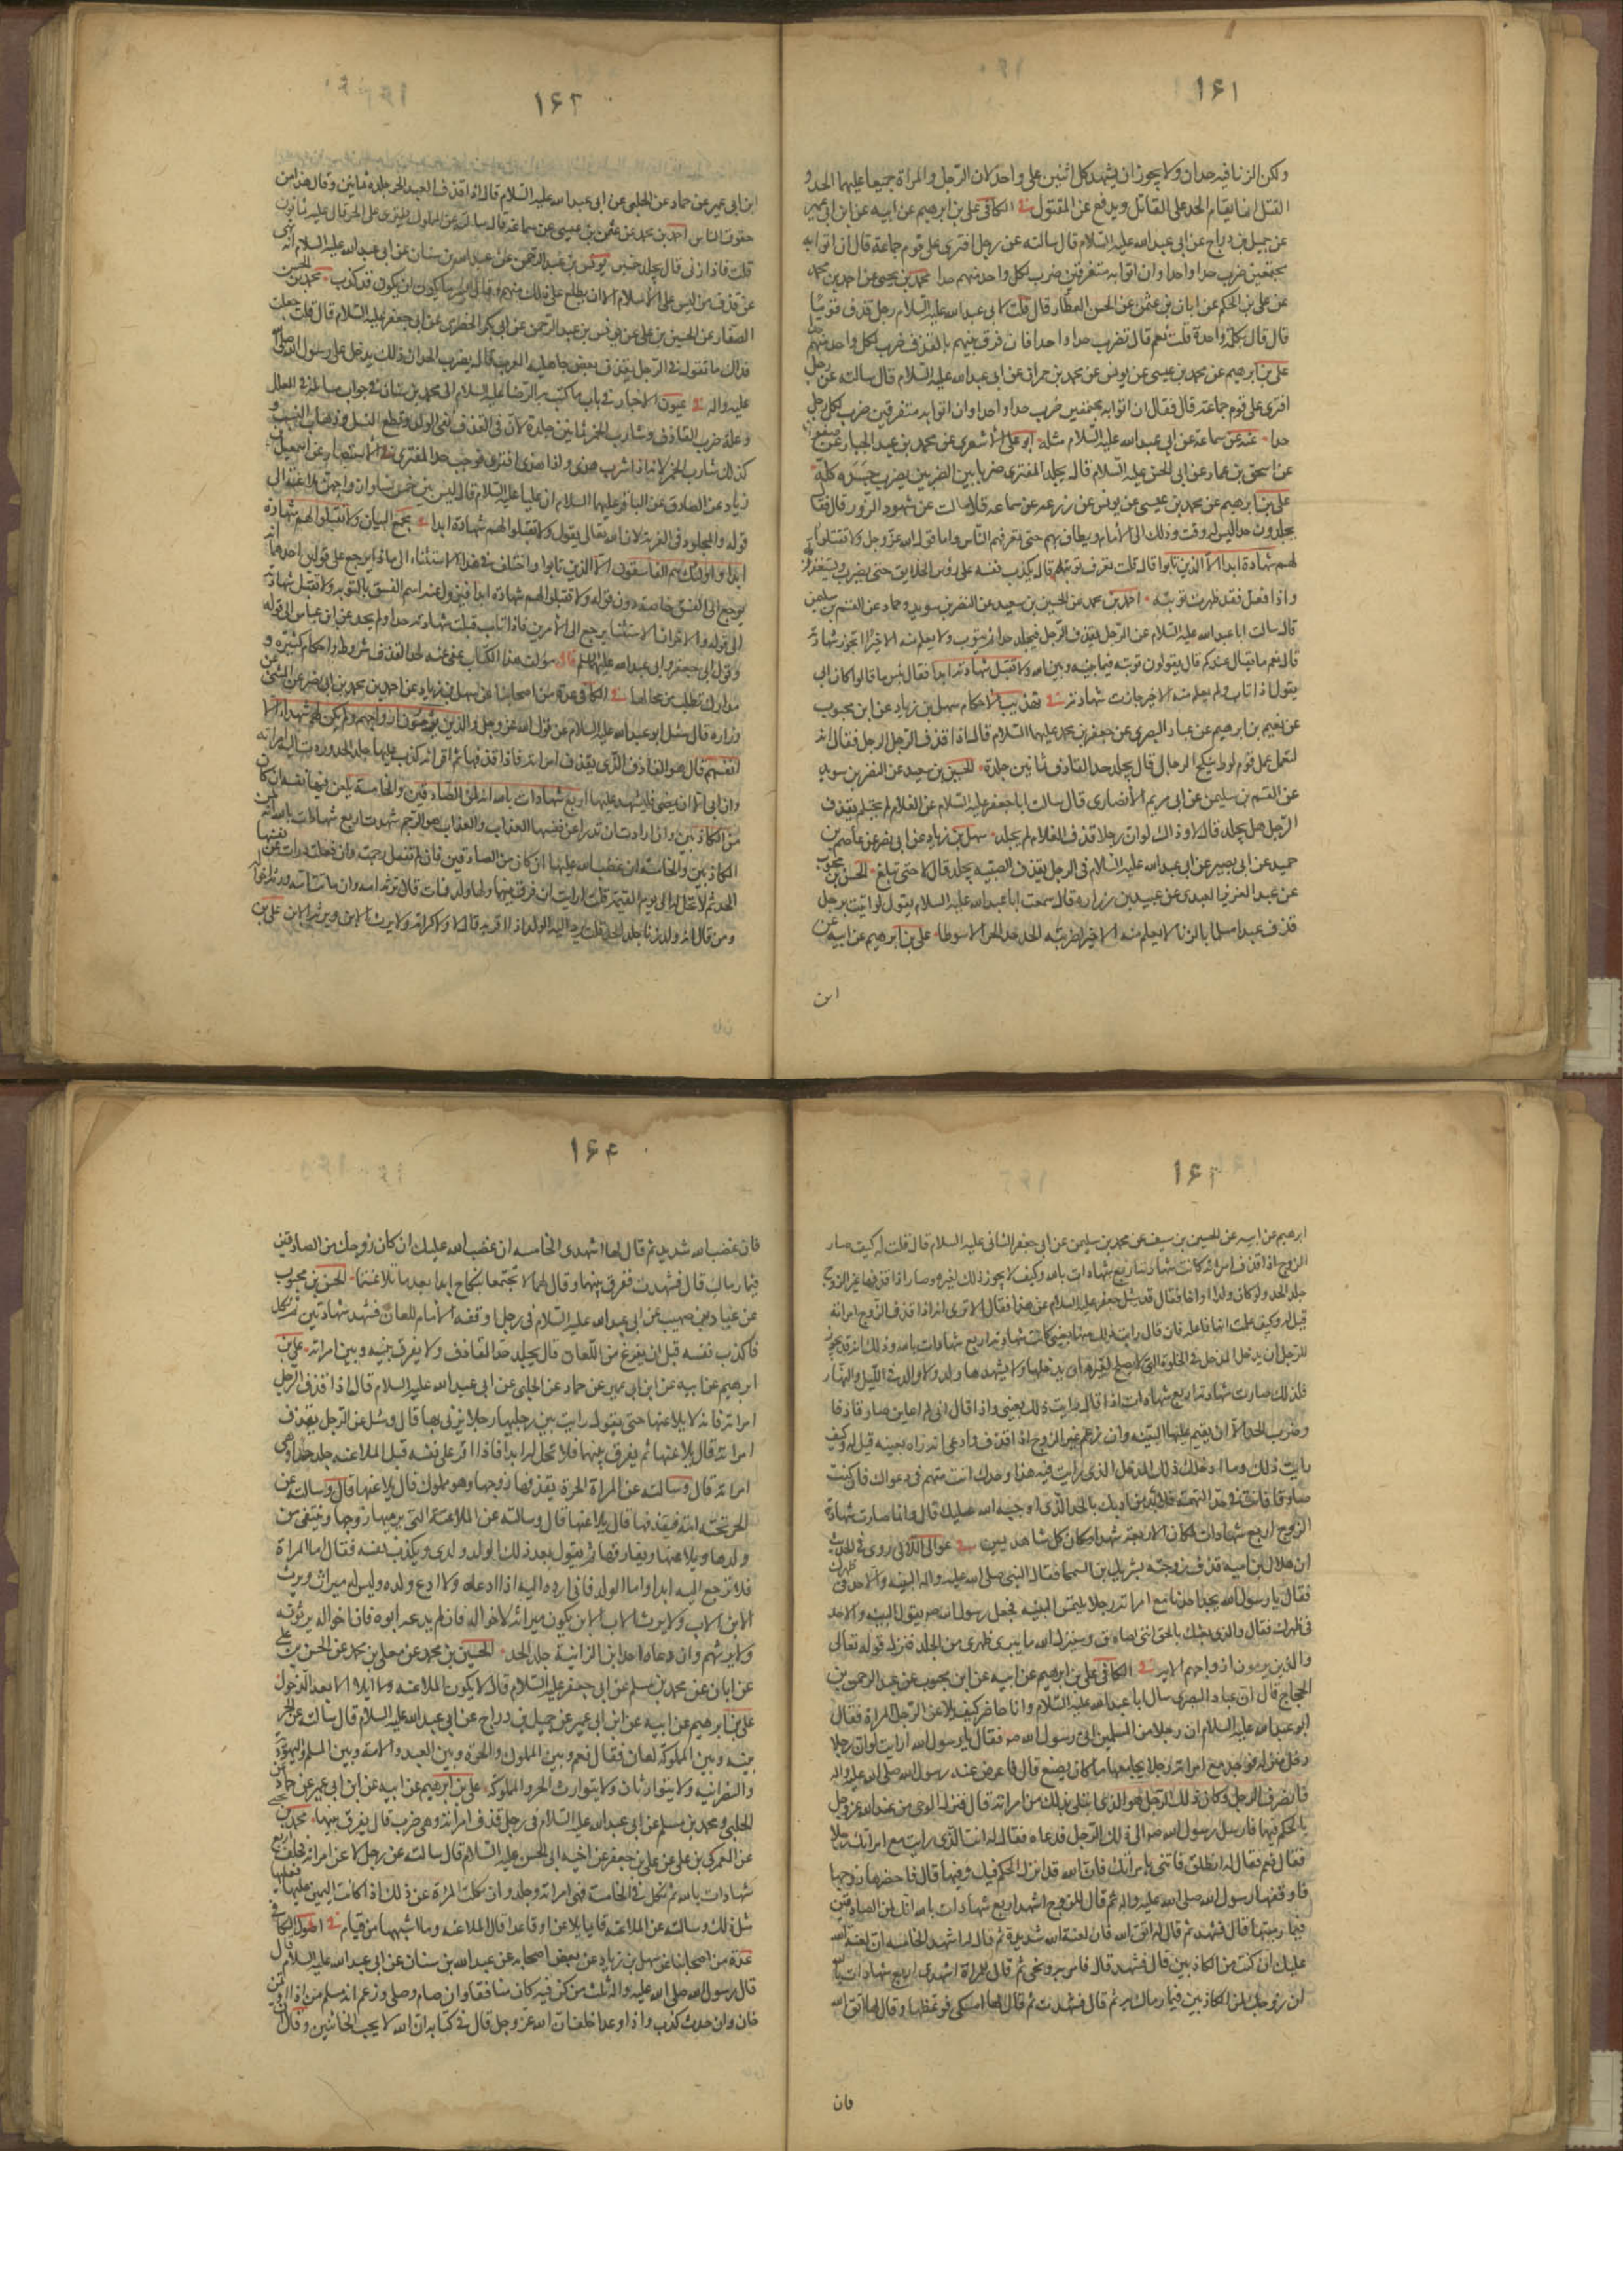 ١٤١
ولكن الزنا فيه حدان ولا يجوز ان يشهد كل اثنين على واحد لان الرجل والمراة جميعا عليهما الحد و
القتل انما يقام الحد على القاتل ويدفع عن المقتول في الكافي على بن ابرهيم عن ابيه عن ابن ابى عمير
عن جميل بن دراج عن ابى عبد الله عليه السلام قال سالته عن رجل افترى على قوم جماعة قال ان اتوا به
مجتمعين ضرب حدا واحدا وان اتوا به متفرقين ضرب لكل واحد منهم حدا محمد بن يحيى عن احمد بن محمد
عن على بن الحكم عن ابان بن عثمن عن الحسن العطار قال قلت لابى عبد الله عليه السلام رجل قذف قوما
قال قال بكلمة واحدة قلت نعم قال تضرب حدا واحدا فان فرق بينهم بالقذف ضرب لكل واحد منهم
على بن ابرهيم عن محمد بن عيسى عن يونس عن محمد بن حمران عن ابى عبد الله عليه السلام قال سالته عن رجل
افترى على قوم جماعة قال فقال ان اتوا به مجتمعين ضرب حدا واحدا وان اتوا به متفرقين ضرب لكل رجل
حدا عنه عن سماعة عن ابى عبد الله عليه السلام مثله ابو على الاشعرى عن محمد بن عبد الجبار عن صفوان
عن اسحق بن عمار عن ابى الحسن عليه السلام قال يجلد المفترى ضربا بين الضربين يضرب جسده كله
على بن ابرهيم عن محمد بن عيسى عن يونس عن زرعة عن سماعة قال سالت عن شهود الزور قال فقال
يجلدون حدا ليس له وقت وذلك الى الامام ويطاف بهم حتى تعرفهم الناس واما قول الله عز وجل ولا تقبلوا
لهم شهادة ابدا الا الذين تابوا قال قلت تعرف توبتهم قال يكذب نفسه على رؤس الخلايق حتى يضرب ويستغفر ربه
واذا فعل فقد ظهرت توبته احمد بن محمد عن الحسين بن سعيد عن النضر بن سويد وحماد عن القسم بن سليمن
قال سالت ابا عبد الله عليه السلام عن الرجل يقذف الرجل فيجلد حدا ثم يتوب ولا يعلم منه الا خيرا اتجوز شهادته
قال نعم ما يقال عندكم قال يقولون توبته فيما بينه وبين الله ولا تقبل شهادته ابدا فقال بئس ما قالوا كان ابى
يقول اذا تاب ولم يعلم منه الا خير جازت شهادته في تهذيب الاحكام سهل بن زياد عن ابن محبوب
عن نعيم بن ابرهيم عن عباد البصرى عن جعفر بن محمد عليهما السلام قال اذا قذف الرجل الرجل فقال انه
لتعمل عمل قوم لوط ينكح الرجال قال يجلد حد القاذف ثمانين جلدة الحسين بن سعيد عن النضر بن سويد
عن القسم بن سليمن عن ابى مريم الانصارى قال سالت ابا جعفر عليه السلام عن الغلام لم يحتلم يقذف
الرجل هل يجلد قال لا وذاك لو ان رجلا قذف الغلام لم يجلد سهل بن زياد عن ابى نصر عن عاصم بن
حميد عن ابى بصير عن ابى عبد الله عليه السلام فى الرجل يقذف الصبية يجلد قال لا حتى تبلغ الحسن بن محبوب
عن عبد العزيز العبدى عن عبيد بن زرارة قال سمعت ابا عبد الله عليه السلام يقول لو اتيت برجل
قذف عبدا مسلما بالزنا لا يعلم منه الا خيرا لضربته الحد حد الحر الا سوطا على بن ابرهيم عن ابيه عن
ابن
١٤٢
ابن ابى عمير عن حماد عن الحلبى عن ابى عبد الله عليه السلام قال اذا قذف العبد الحر جلد ثمانين وقال هذا من
حقوق الناس احمد بن محمد عن عثمن بن عيسى عن سماعة قال سالته عن المملوك يفترى على الحر قال عليه ثمانون
قلت فاذا زنى قال يجلد خمسين يونس بن عبد الرحمن عن عبد الله بن سنان عن ابى عبد الله عليه السلام انه نهى
عن قذف من ليس على الاسلام الا ان يطلع على ذلك منهم وقال ايسر ما يكون ان يكون قد كذب محمد بن الحسن
الصفار عن الحسين بن على عن يونس بن عبد الرحمن عن ابى بكر الحضرمى عن ابى جعفر عليه السلام قال قلت جعلت
فداك ما تقول فى الرجل يقذف بعض جاهلية العرب قال يضرب الحد ان ذلك يدخل على رسول الله صلى الله
عليه واله في عيون الاخبار فى باب ما كتب به الرضا عليه السلام الى محمد بن سنان فى جواب مسائله فى العلل
وعلة ضرب القاذف وشارب الخمر ثمانين جلدة لان فى القذف نفى الولد وقطع النسل وذهاب النسب و
كذلك شارب الخمر لانه اذا شرب هذى واذا هذى افترى فوجب حد المفترى في الاستبصار عن اسمعيل بن
زياد عن الصادق عن الباقر عليهما السلام ان عليا عليه السلام قال ليس بين خمس نساء وازواجهن ملاعنة الى
قوله والمجلود فى الفرية لان الله تعالى يقول ولا تقبلوا لهم شهادة ابدا في مجمع البيان ولا تقبلوا لهم شهادة
ابدا واولئك هم الفاسقون الا الذين تابوا واختلف فى هذا الاستثناء الى ماذا يرجع على قولين احدهما انه
يرجع الى الفسق خاصة دون قوله ولا تقبلوا لهم شهادة ابدا فيزول عنه اسم الفسق بالتوبه ولا تقبل شهادته
الى قوله والاخر ان الاستثناء يرجع الى الامرين فاذا تاب قبلت شهادته حد او لم يحد عن ابن عباس الى قوله
وقول ابى جعفر وابى عبد الله عليهما السلم قال مؤلف هذا الكتاب عفى عنه لحد القذف شروط واحكام كثيرة و
مدارك تطلب من محالها في الكافى عدة من اصحابنا عن سهل بن زياد عن احمد بن محمد بن ابى نصر عن المثنى عن
زرارة قال سئل ابو عبد الله عليه السلام عن قول الله عز وجل والذين يرمون ازواجهم ولم يكن لهم شهداء الا
انفسهم قال هو القاذف الذى يقذف امراته فاذا قذفها ثم اقر انه كذب عليها جلد الحد وردت اليه امراته
وان ابى الا ان يمضى فليشهد عليها اربع شهادات بالله انه لمن الصادقين والخامسة يلعن فيها نفسه ان كان
من الكاذبين وان ارادت ان تدرا عن نفسها العذاب والعذاب هو الرجم شهدت اربع شهادات بالله انه لمن
الكاذبين والخامسة ان غضب الله عليها ان كان من الصادقين فان لم تفعل رجمت وان فعلت درات عن نفسها
الحد ثم لا تحل له الى يوم القيمة قلت ارايت ان فرق بينهما ولها ولد فمات قال ترثه امه وان ماتت امه ورثه اخواله
ومن قال انه ولد زنا جلد الحد قلت يرد اليه الولد اذا اقر به قال لا ولا كرامة ولا يرث الابن ويرثه الابن على بن
ابرهيم عن ابيه عن الحسين بن سيف عن محمد بن سليمن عن ابى جعفر الثانى عليه السلام قال قلت له كيف صار
الزوج اذا قذف امراته كانت شهادته اربع شهادات بالله وكيف لا يجوز ذلك لغيره وصار اذا قذفها غير الزوج
جلد الحد ولو كان ولدا او اخا فقال قد سئل جعفر عليه السلام عن هذا فقال الا ترى انه اذا قذف الزوج امراته
قيل له وكيف علمت انها فاعلة فان قال رايت ذلك منها بعينى كانت شهادته اربع شهادات بالله وذلك انه قد يجوز
للرجل ان يدخل المدخل فى الخلوة التى لا يصلح لغيره ان يدخلها ولا يشهدها ولد ولا والد فى الليل والنهار
فلذلك صارت شهادته اربع شهادات اذا قال رايت ذلك بعينى واذا قال انى لم اعاين صار قاذفا
وضرب الحد الا ان يقيم عليها البينة وان زعم غير الزوج اذا قذف وادعى انه راه بعينه قيل له وكيف
رايت ذلك وما ادخلك ذلك المدخل الذى رايت فيه هذا وحدك انت متهم فى دعواك فان كنت
صادقا فانت فى حد التهمة فلا بد من ادبك بالحد الذى اوجبه الله عليك قال وانما صارت شهادة
الزوج اربع شهادات لمكان الاربعة شهداء مكان كل شاهد يمين في عوالى اللئالى روى فى الحديث
ان هلال بن امية قذف زوجته بشريك بن السمحا فقال النبى صلى الله عليه واله البينة والا حد فى ظهرك
فقال يا رسول الله يجد احدنا مع امراته رجلا يلتمس البينة فجعل رسول الله ص يقول البينة والا حد
فى ظهرك فقال والذى بعثك بالحق اننى لصادق وسينزل الله ما يبرى ظهرى من الجلد فنزل قوله تعالى
والذين يرمون ازواجهم الاية في الكافى على بن ابرهيم عن ابيه عن ابن محبوب عن عبد الرحمن بن
الحجاج قال ان عباد البصرى سال ابا عبد الله عليه السلام وانا حاضر كيف يلاعن الرجل المراة فقال
ابو عبد الله عليه السلام ان رجلا من المسلمين اتى رسول الله ص فقال يا رسول الله ارايت لو ان رجلا
دخل منزله فوجد مع امراته رجلا يجامعها ما كان يصنع قال فاعرض عنه رسول الله صلى الله عليه واله
فانصرف الرجل وكان ذلك الرجل هو الذى ابتلى بذلك من امراته قال فنزل الوحى من عند الله عز وجل
بالحكم فيها فارسل رسول الله ص الى ذلك الرجل فدعاه فقال له انت الذى رايت مع امراتك رجلا
فقال نعم فقال له انطلق فاتنى بامراتك فان الله قد انزل الحكم فيك وفيها قال فاحضرها زوجها
فاوقفها رسول الله صلى الله عليه واله ثم قال للزوج اشهد اربع شهادات بالله انك لمن الصادقين
فيما رميتها قال فشهد ثم قال له اتق الله فان لعنة الله شديدة ثم قال له اشهد الخامسة ان لعنة الله
عليك ان كنت من الكاذبين قال فشهد قال فامر به فنحى ثم قال للمراة اشهدى اربع شهادات بالله
ان زوجك لمن الكاذبين فيما رماك به ثم قال فشهدت ثم قال لها امسكى فوعظها وقال لها اتق الله
فان
١٦٤
فان غضب الله شديد ثم قال لها اشهدى الخامسه ان غضب الله عليك ان كان زوجك من الصادقين
فيما رماك قال فشهدت ففرق بينهما وقال لهما لا تجتمعا بنكاح ابدا بعد ما تلاعنتما الحسن بن محبوب
عن عباد بن صهيب عن ابى عبد الله عليه السلام فى رجل اوقفه الامام للعان فشهد شهادتين ثم نكل
فاكذب نفسه قبل ان يفرغ من اللعان قال يجلد حد القاذف ولا يفرق بينه وبين امراته على بن
ابرهيم عن ابيه عن ابن ابى عمير عن حماد عن الحلبى عن ابى عبد الله عليه السلام قال اذا قذف الرجل
امراته فانه لا يلاعنها حتى يقول رايت بين رجليها رجلا يزنى بها قال وسئل عن الرجل يقذف
امراته قال يلاعنها ثم يفرق بينهما فلا تحل له ابدا فاذا اقر على نفسه قبل الملاعنه جلد حدا وهى
امراته قال وسالته عن المراة الحرة يقذفها زوجها وهو مملوك قال يلاعنها قال وسالته عن
الحر تحته امة فيقذفها قال يلاعنها قال وسالته عن الملاعنة التى يرميها زوجها وينتفى من
ولدها ويلاعنها ويفارقها ثم يقول بعد ذلك الولد ولدى ويكذب نفسه فقال اما المراة
فلا ترجع اليه ابدا واما الولد فانى ارده اليه اذا ادعاه ولا ادع ولده وليس له ميراث ويرث
الابن الاب ولا يرث الاب الابن يكون ميراثه لاخواله فان لم يدعه ابوه فان اخواله يرثونه
ولا يرثهم وان دعاه احد ابن الزانية جلد الحد الحسين بن محمد عن معلى بن محمد عن الحسن بن على
عن ابان عن محمد بن مسلم عن ابى جعفر عليه السلام قال لا يكون الملاعنه ولا ايلاء الا بعد الدخول
على بن ابرهيم عن ابيه عن ابن ابى عمير عن جميل بن دراج عن ابى عبد الله عليه السلام قال سالته عن الحر
بينه وبين المملوكة لعان فقال نعم وبين المملوك والحرة وبين العبد والامة وبين المسلم واليهودية
والنصرانيه ولا يتوارثان ولا يتوارث الحر والمملوكة على بن ابرهيم عن ابيه عن ابن ابى عمير عن حماد عن
الحلبى ومحمد بن مسلم عن ابى عبد الله عليه السلام فى رجل قذف امراته وهى خرساء قال يفرق بينهما محمد بن يحيى
عن العمركى بن على عن على بن جعفر عن اخيه ابى الحسن عليه السلام قال سالته عن رجل لاعن امراته فحلف اربع
شهادات بالله ثم نكل فى الخامسة فهى امراته وجلد وان نكلت المراة عن ذلك اذا كانت اليمين عليها فعليها
مثل ذلك وسالته عن الملاعنة قائما يلاعن او قاعدا قال الملاعنه وما اشبهها من قيام في اصول الكافى
عدة من اصحابنا عن سهل بن زياد عن بعض اصحابه عن عبد الله بن سنان عن ابى عبد الله عليه السلام قال
قال رسول الله صلى الله عليه واله ثلث من كن فيه كان منافقا وان صام وصلى وزعم انه مسلم من اذا اؤتمن
خان وان حدث كذب واذا وعد اخلف ان الله عز وجل قال فى كتابه ان الله لا يحب الخائنين وقال ان